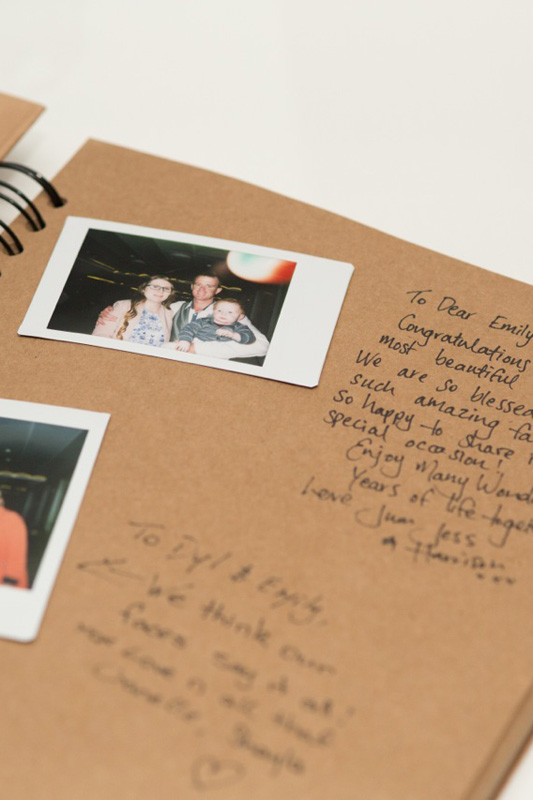 To Dear Emily
Congratulations
most beautiful
We are so blessed
such amazing fa
so happy to share
special occasion!
Enjoy Many Wond
Years of life toget
Love Jess
& Harrison
To & Emily,
We think our
faces say it all!
is all